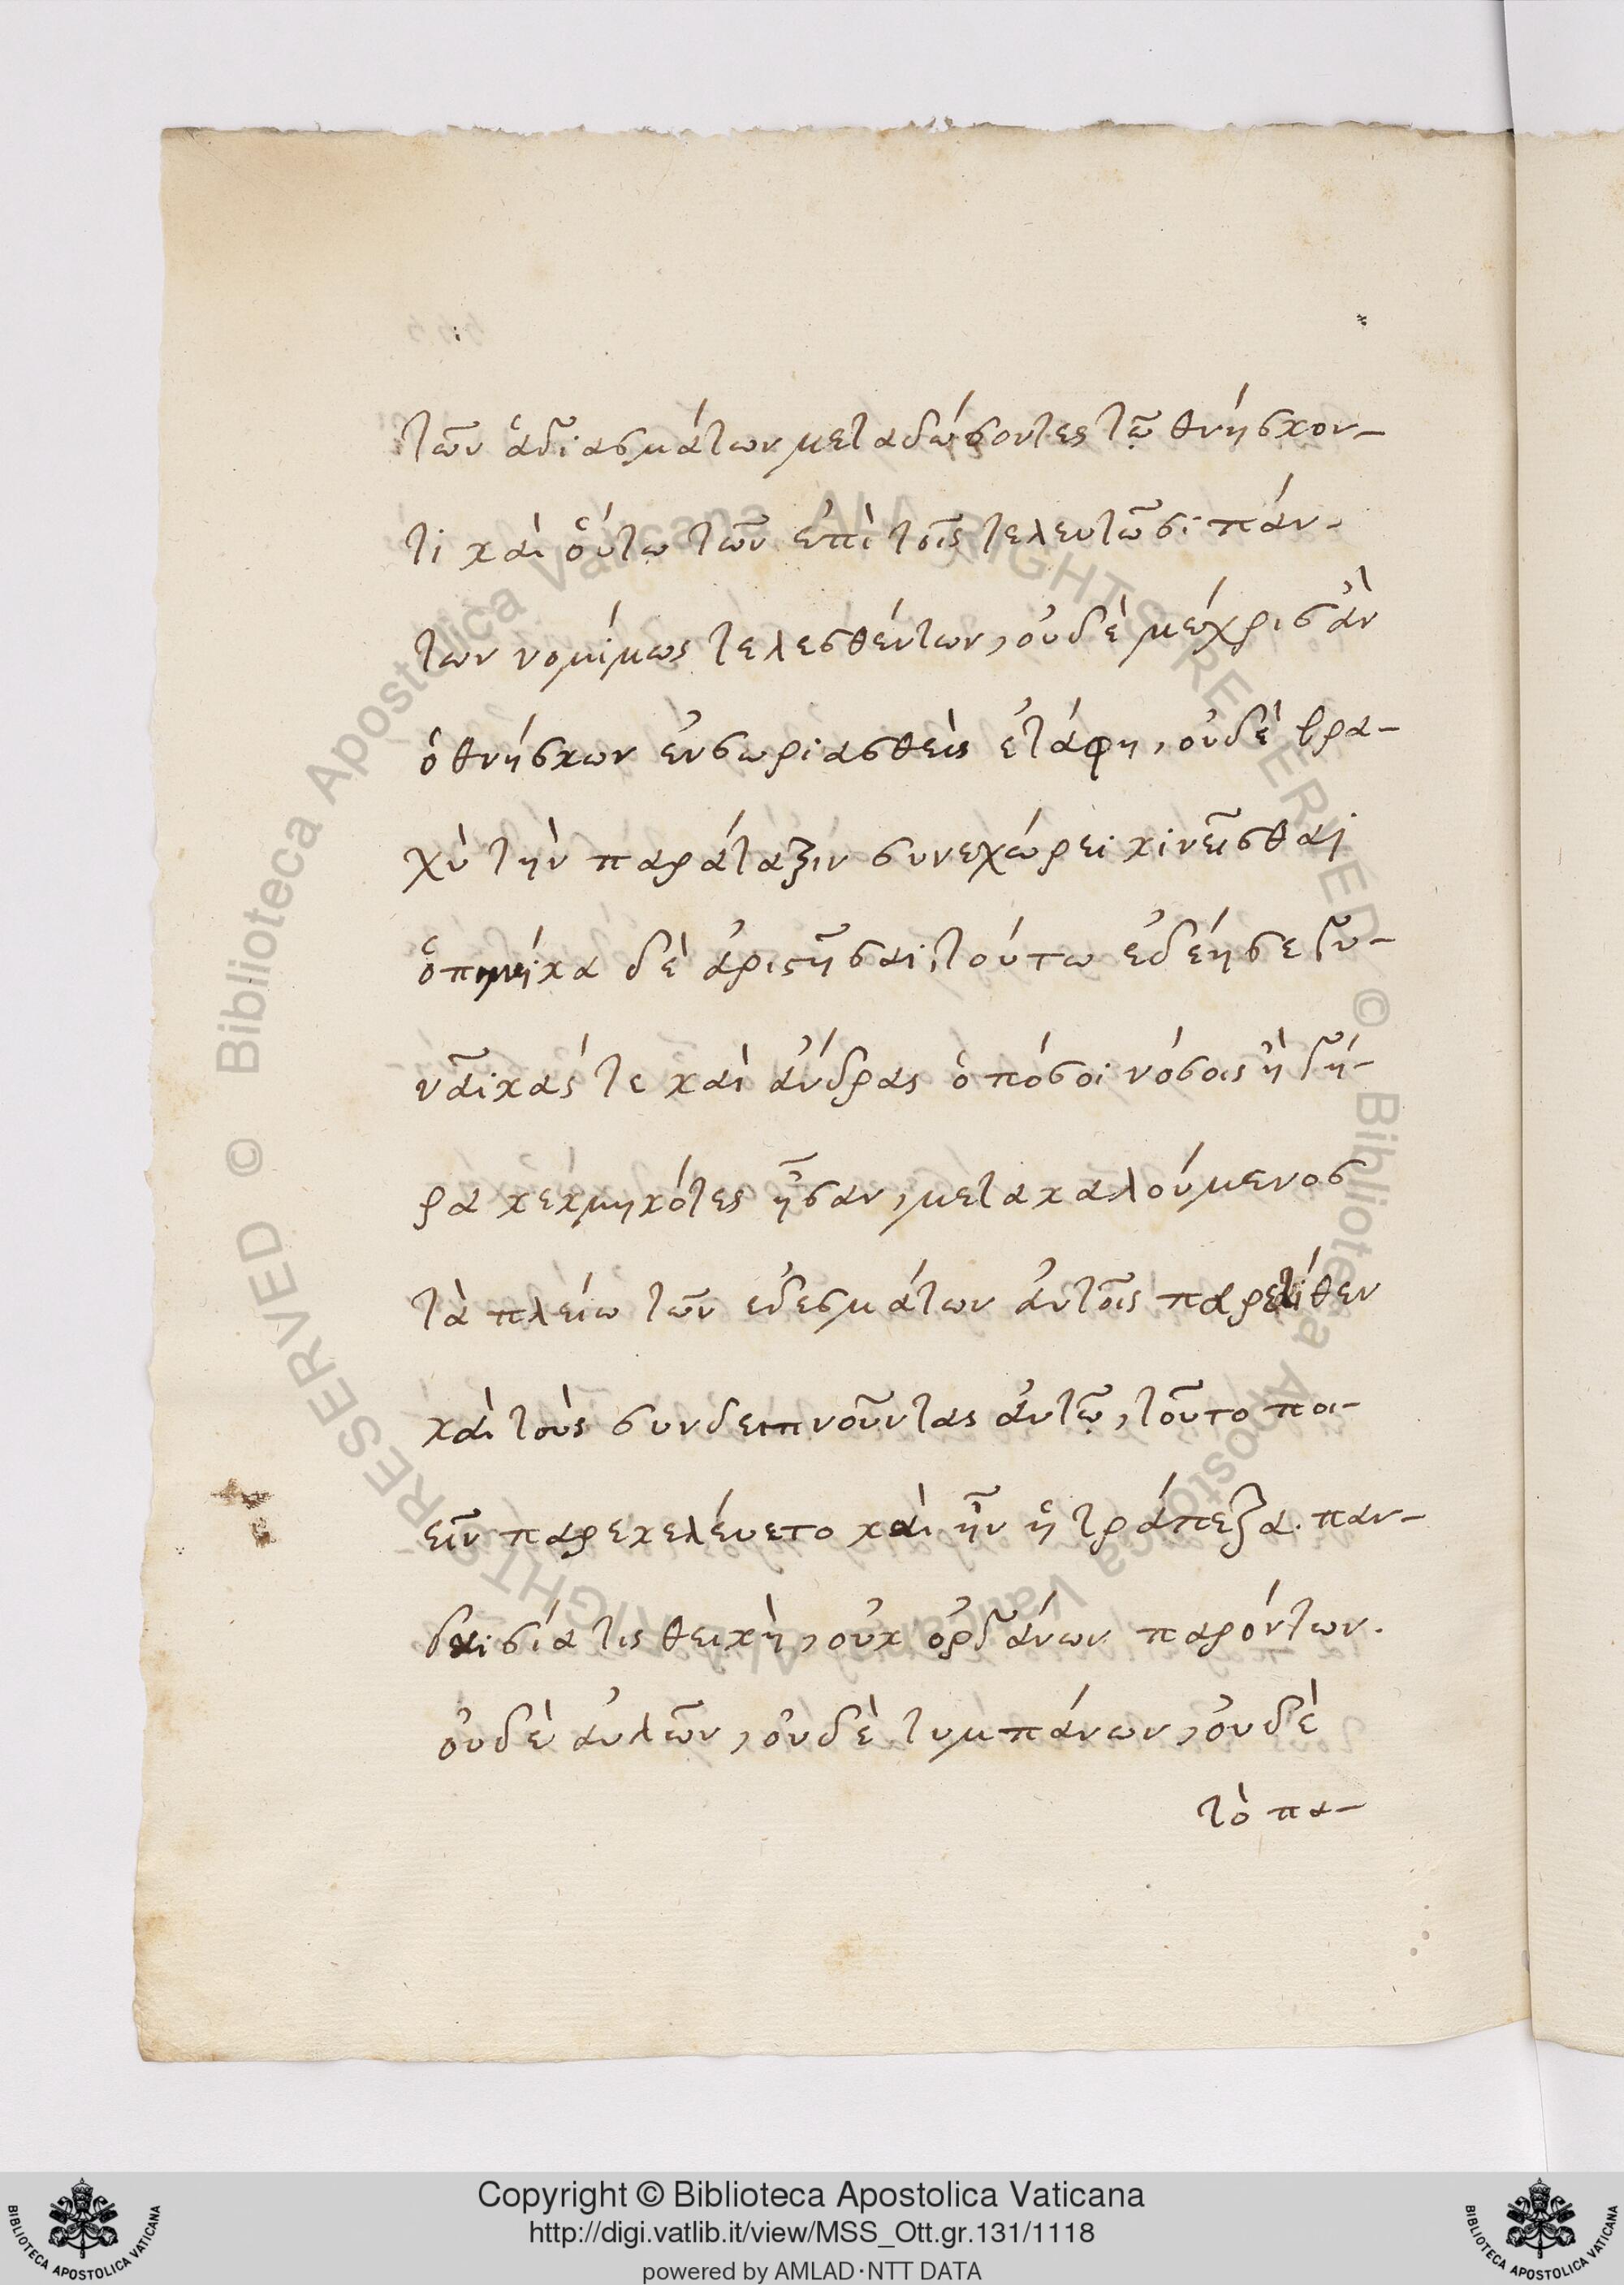 τῶν ἁγιασμάτων μεταδώσοντες τῷ θνήσκον-
τι καὶ ὅυτω τῶν ἐπὶ τοῖς τελευτῶσι πάν-
των νομίμως τελεσθέντων, ὀυδὲ μέχρις ἂν
ὁ θνήσκων ἐνσωριασθεὶς ἐτάφη, ὀυδὲ βρα-
χὺ τὴν παράταξιν συνεχώρει κινεῖσθαι
ὁπηνίκα δὲ ἀριστῆσαι τούτω ἐδέησε γυ-
ναῖκάς τε καὶ ἄνδρας ὁπόσοι νόσοις ἢ γή-
ρα κεκμηκότες ἦσαν, μετακαλούμενος
τὰ πλείω τῶν ἐδεσμάτων ἀυτοῖς παρετίθεν
καὶ τοὺς συνδειπνοῦντας ἀυτῷ, τοῦτο ποι-
εῖν παρεκελέυετο καὶ ἦν ἡ τράπεζα. παν-
δαισία τις θεικὴ, ὀυκ ὀργάνων παρόντων.
ὀυδὲ ἀυλῶν, ὀυδὲ τυμπάνων, ὀυδὲ
τὸ πα-
Copyright © Biblioteca Apostolica Vaticana
http://digi.vatlib.it/view/MSS_Ott.gr.131/1118
powered by AMLAD·NTT DATA
© Biblioteca Apostolica Vaticana ALL RIGHTS RESERVED © Biblioteca Apostolica Vaticana ALL RIGHTS RESERVED
BIBLIOTECA APOSTOLICA VATICANA
BIBLIOTECA APOSTOLICA VATICANA